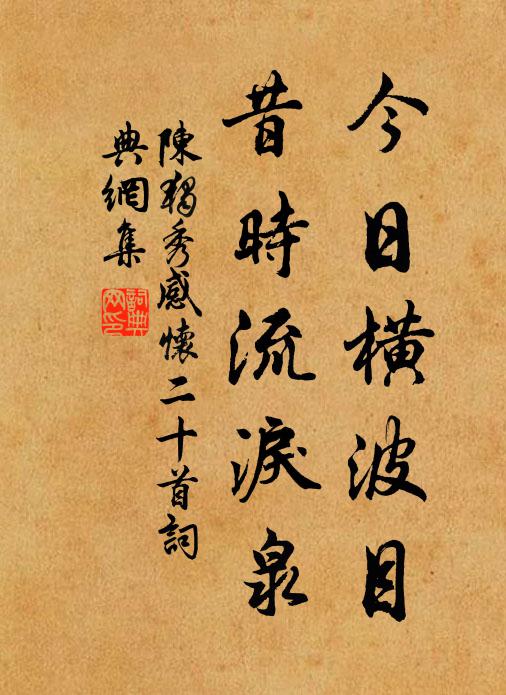 今日橫波目
昔時流淚泉
陳獨秀感懷二十首詞
典網集
詞典
网印